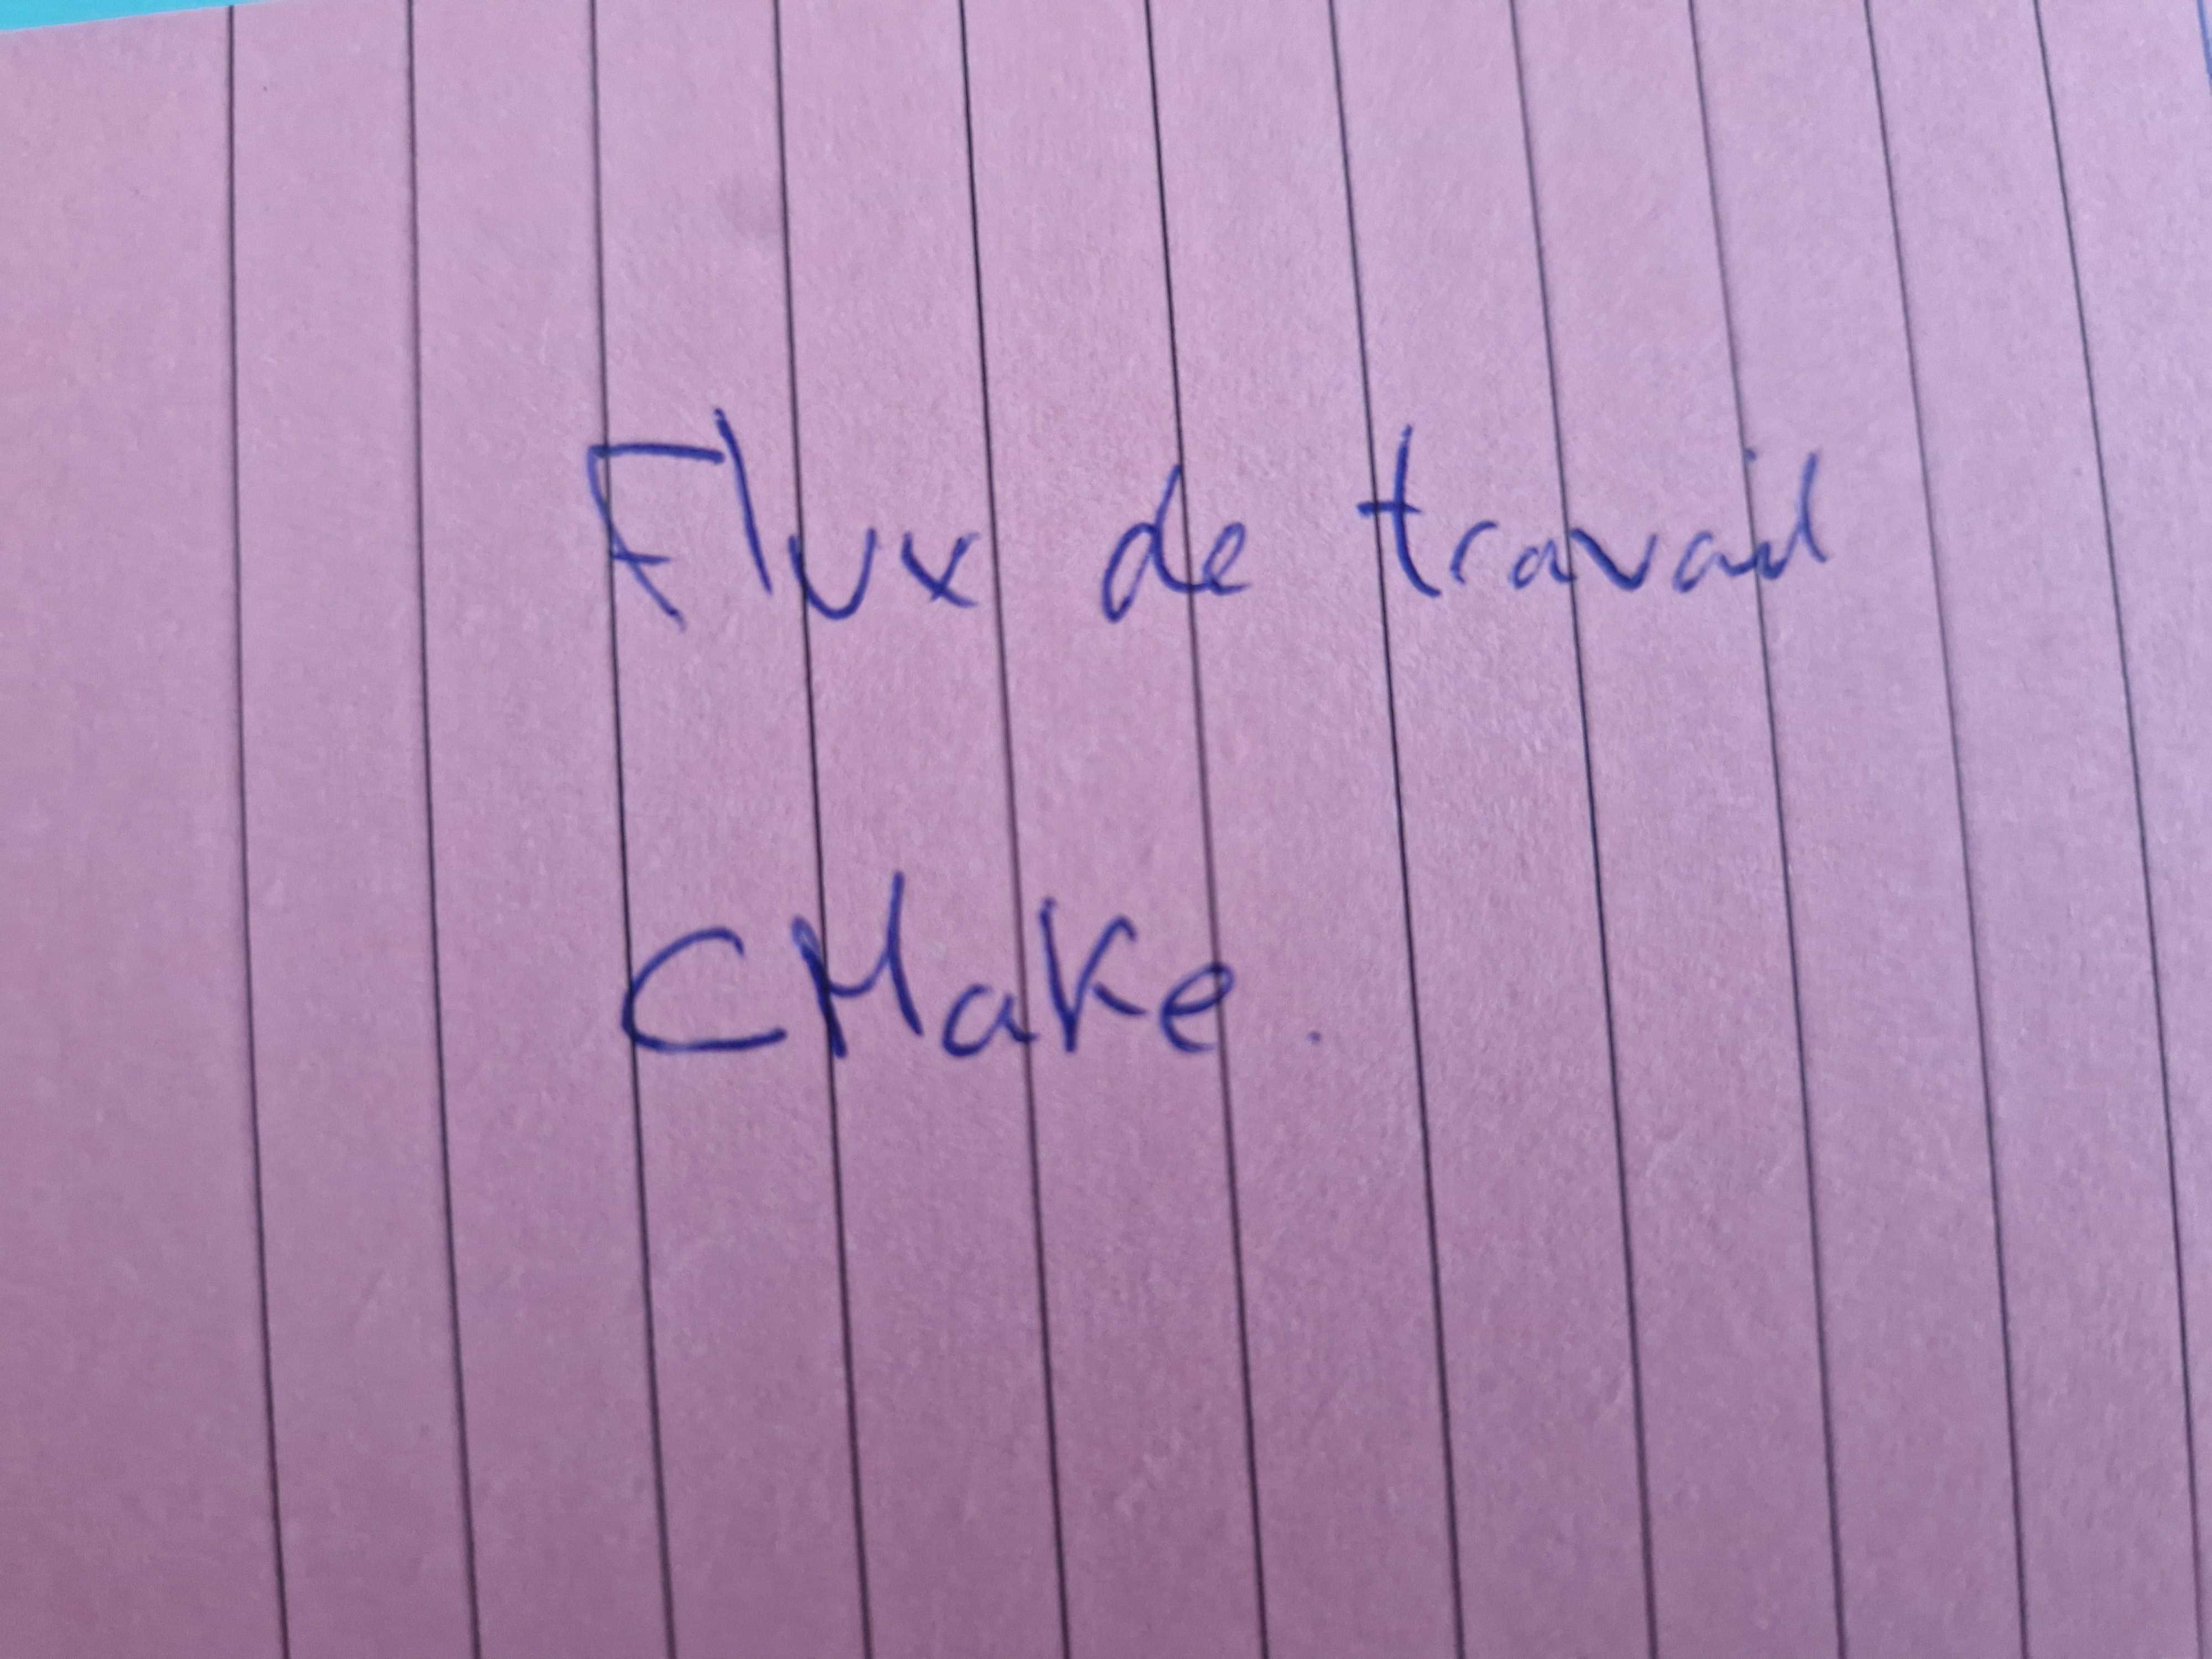 Flux de travail
CMake.